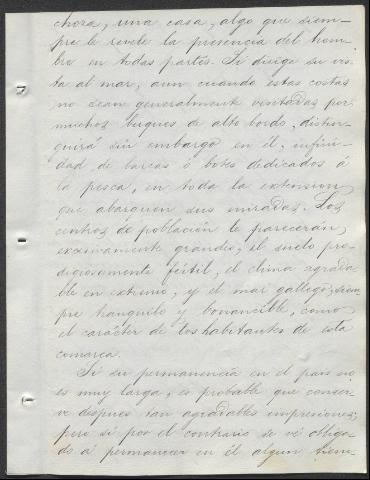 choza, una casa, algo que siem-
pre le revele la presencia del hom-
bre en todas partes. Si dirige su vis-
ta al mar, aun cuando estas costas
no sean generalmente visitadas por
muchos buques de alto bordo, distin-
guirá sin embargo en él, infini-
dad de barcas ó botes dedicados á
la pesca, en toda la extension
que abarquen sus miradas. Los
centros de población le parecerán
excesivamente grandes, el suelo pro-
digiosamente fértil, el clima agrada-
ble en extremo, y el mar gallego, siem-
pre tranquilo y bonancible, como
el carácter de los habitantes de esta
comarca.
Si su permanencia en el pais no
es muy larga, es probable que conser-
ve despues tan agradables impresiones;
pero si por el contrario se vé obliga-
do á permanecer en él algun tiem-